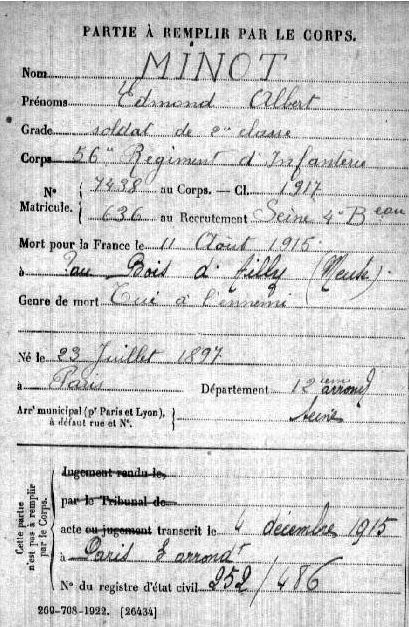 PARTIE À REMPLIR PAR LE CORPS.
Nom MINOT
Prénoms Edmond Albert
Grade soldat de 2e classe
Corps 56e Régiment d'Infanterie
N° 7438 au Corps. — Cl. 1917
Matricule. 636 au Recrutement Seine 4e Beau
Mort pour la France le 11 Août 1915
à au Bois d'Ailly (Meuse)
Genre de mort Tué à l'ennemi
Né le 23 Juillet 1897
à Paris Département 12em arrond
Arrt municipal (pr Paris et Lyon), à défaut rue et N°. Seine
Cette partie n'est pas à remplir par le Corps.
Jugement rendu le
par le Tribunal de
acte ou jugement transcrit le 4 décembre 1915
à Paris arrondt
N° du registre d'état civil 252/486
260-708-1922. [26434]